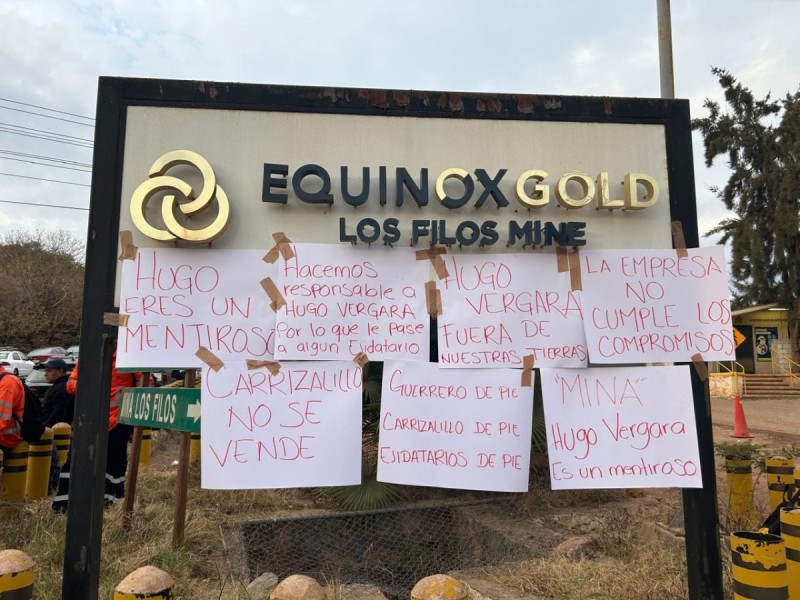 EQUINOXGOLD
LOS FILOS MINE
HUGO
ERES UN
MENTIROSO
Hacemos
responsable a
HUGO VERGARA
Por lo que le pase
a algun Ejidatario
HUGO
VERGARA
FUERA DE
NUESTRAS TIERRAS
LA EMPRESA
NO
CUMPLE LOS
COMPROMISOS
CARRIZALILLO
NO SE
VENDE
GUERRERO DE PIE
CARRIZALILLO DE PIE
EJIDATARIOS DE PIE
"MINA"
Hugo Vergara
Es un mentiroso
INA LOS FILOS